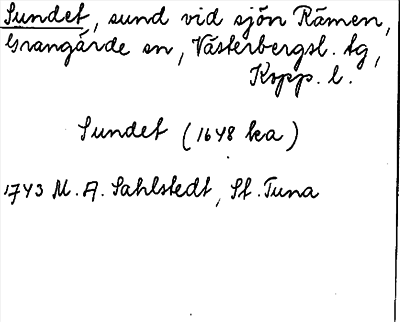 Sundet, sund vid sjön Rämen,
Grangärde sn, Västerbergsl. tg,
Kopp. l.
Sundet (1648 ka)
1743 M. A. Sahlstedt, St. Tuna